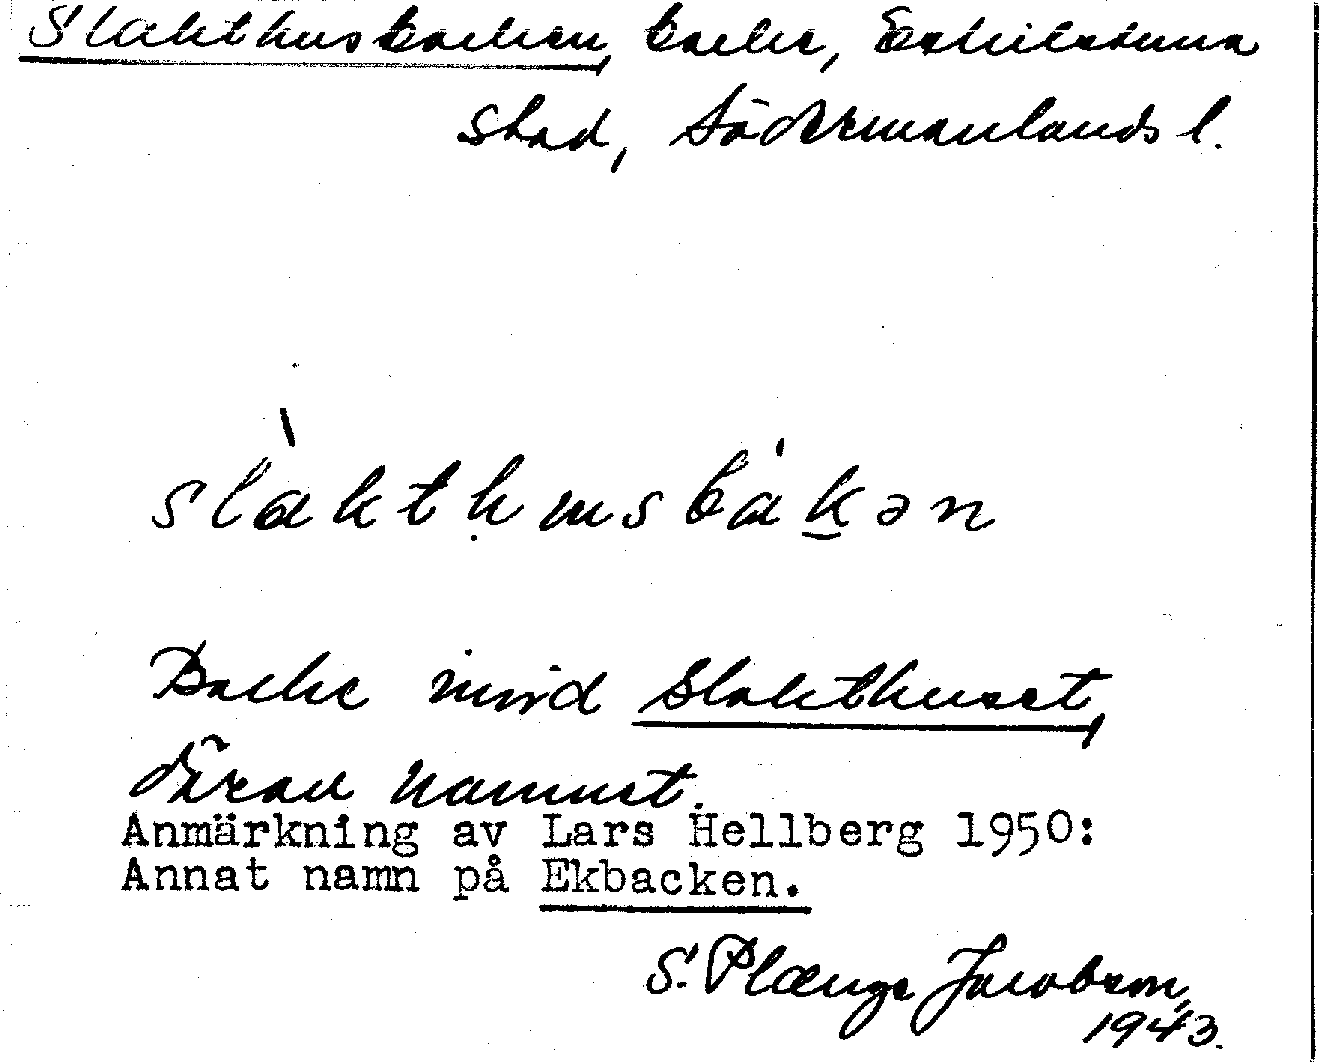 Slakthusbacken, backe, Eskilstuna
stad, Södermanlands l.
slàkthusbákən
Backe invid Slakthuset,
därav namnet.
Anmärkning av Lars Hellberg 1950:
Annat namn på Ekbacken.
S. Plænge Jacobson,
1943.